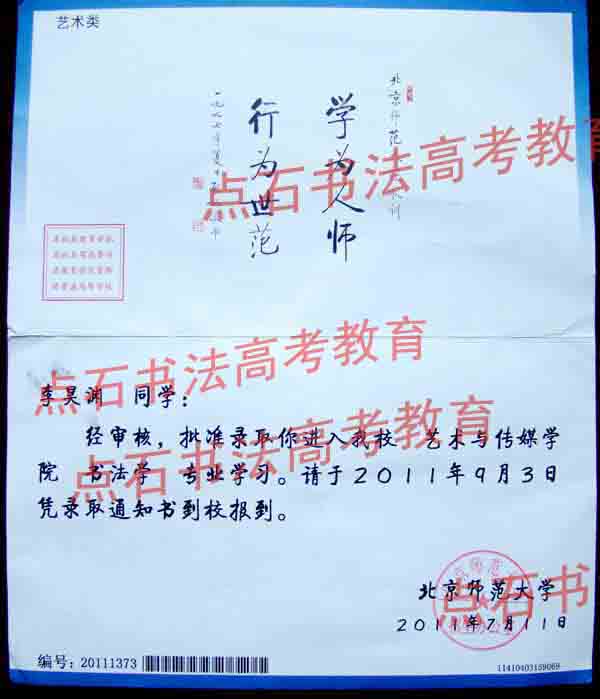 艺术类
北京师范
学为人师
行为世范
点石书法高考教育
点石书法高考教育
李昊渊 同学：
点石书法高考教育
经审核，批准录取你进入我校 艺术与传媒学
院 书法学 专业学习。请于2011年9月3日
凭录取通知书到校报到。
北京师范大学
点石书
2011年7月11日
编号：20111373
11410403159069